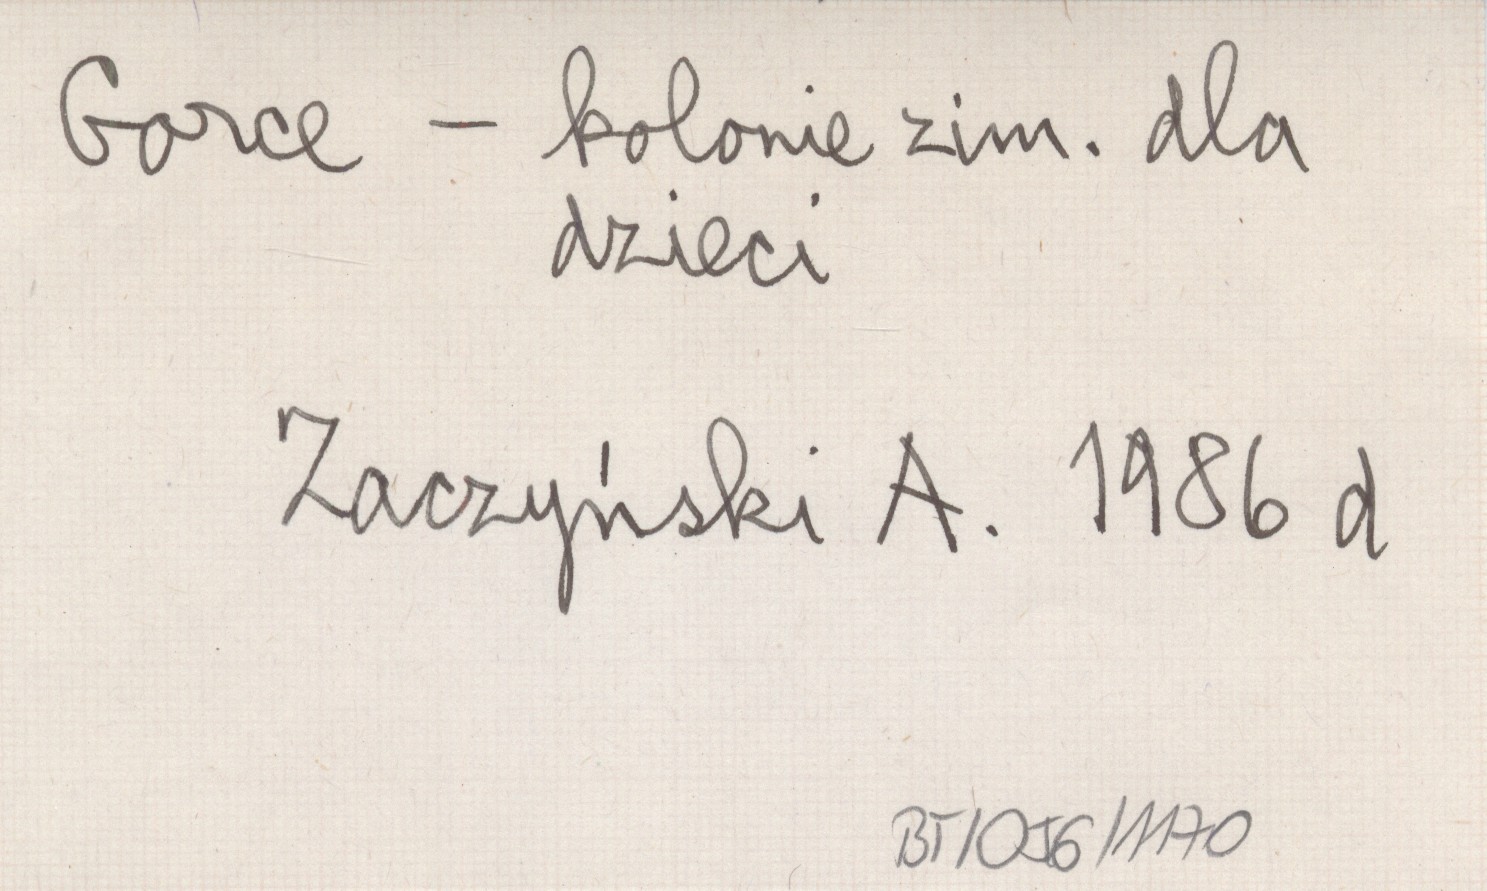 Gorce - kolonie zim. dla
dzieci
Zaczyński A. 1986 d
BT/OJG/1170